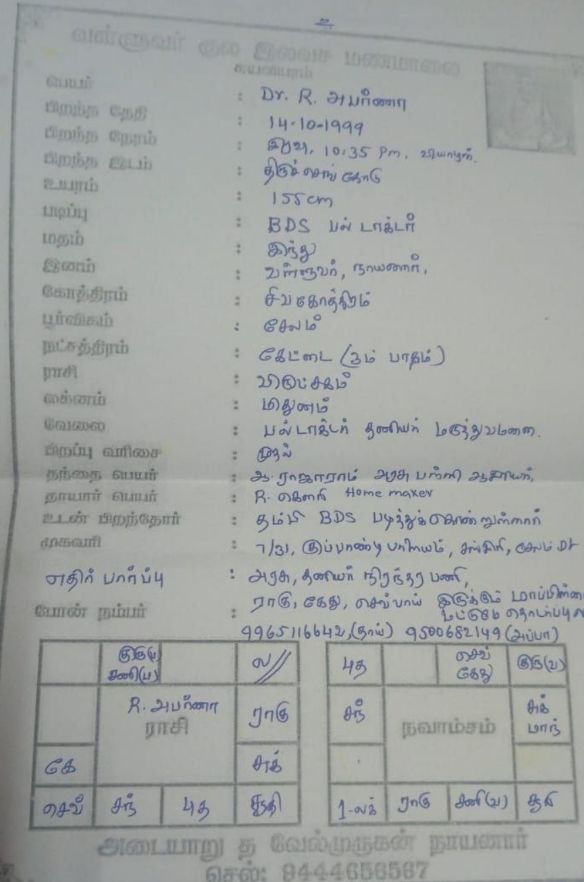 உ
வள்ளுவர் குல இலவச மணமாலை
சுயவரம்
பெயர் : Dr. R. அபர்ணா
பிறந்த தேதி : 14-10-1999
பிறந்த நேரம் : இரவு, 10.35 Pm, வியாழன்.
பிறந்த இடம் : திருச்செங்கோடு
உயரம் : 155 cm
படிப்பு : BDS பல் டாக்டர்
மதம் : இந்து
இனம் : வள்ளுவர், நாயனார்.
கோத்திரம் : சிவகோத்திரம்
பூர்வீகம் : சேலம்
நட்சத்திரம் : கேட்டை (3ம் பாதம்)
ராசி : விருட்சகம்
லக்னம் : மிதுனம்
வேலை : பல் டாக்டர் தனியார் மருத்துவமனை.
பிறப்பு வரிசை : முதல்
தந்தை பெயர் : ஆ. ராஜாராம் அரசு பள்ளி ஆசிரியர்,
தாயார் பெயர் : R. கௌரி Home maker
உடன் பிறந்தோர் : தம்பி BDS படித்துக்கொண்டுள்ளார்
முகவரி : 7/31, குப்பாண்டிபாளையம், சங்ககிரி, சேலம் Dt
எதிர் பார்ப்பு : அரசு, தனியார் நிரந்தர பணி,
ராகு, கேது, செவ்வாய் இருக்கும் மாப்பிள்ளை
மட்டுமே
போன் நம்பர் : 9965116642, (தாய்) 9500682149 (அப்பா)
குரு(வ) சனி(வ) ல// புத செவ் கேது குரு(வ)
R. அபர்ணா ராகு சந் சுக் மாந்
ராசி நவாம்சம்
கே சுக்
செவ் சந் புத சூரி 1-லக் ராகு சனி(வ) சூரி
அடையாறு த வேல்முருகன் நாயனார்
செல்: 9444656567